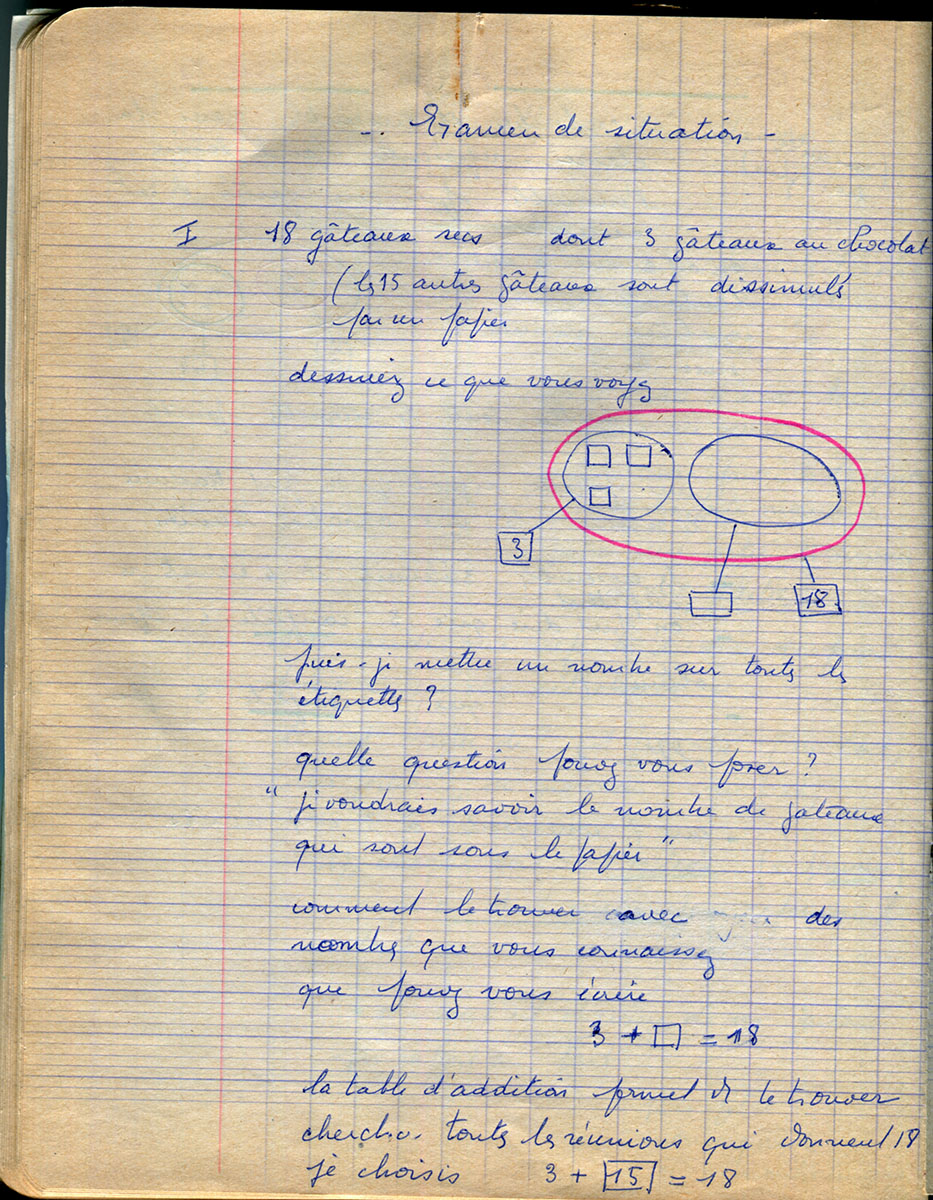 -. Examen de situation -
I 18 gâteaux secs dont 3 gâteaux au chocolat
(les 15 autres gâteaux sont dissimulés
par un papier
dessinez ce que vous voyez
3
18
puis-je mettre un nombre sur toutes les
étiquettes ?
quelle question pouvez vous poser ?
"je voudrais savoir le nombre de gateaux
qui sont sous le papier"
comment le trouver avec des
nombres que vous connaissez
que pouvez vous écrire
3 + □ = 18
la table d'addition permet de le trouver
cherche toutes les réunions qui donnent 18
je choisis 3 + 15 = 18